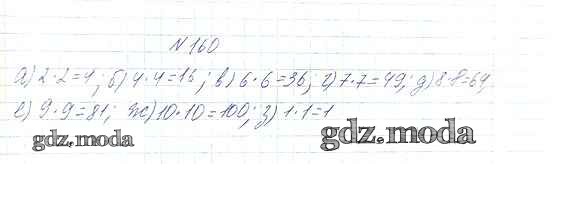 №160
а) 2·2=4; б) 4·4=16; в) 6·6=36; г) 7·7=49; д) 8·8=64
е) 9·9=81; ж) 10·10=100; з) 1·1=1
gdz.moda
gdz.moda